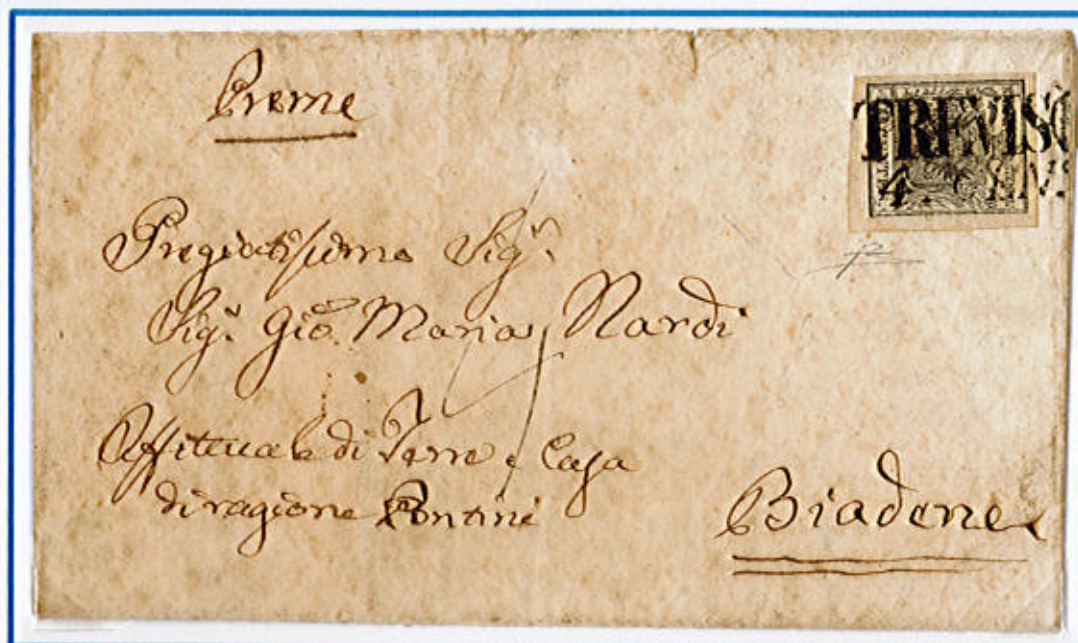 Preme
TREVISO
4
Pregiatissimo Sigr.
Sigr. Gio. Maria Nardi
Affituale di Terre e Casa
di ragione Pontini
Biadene